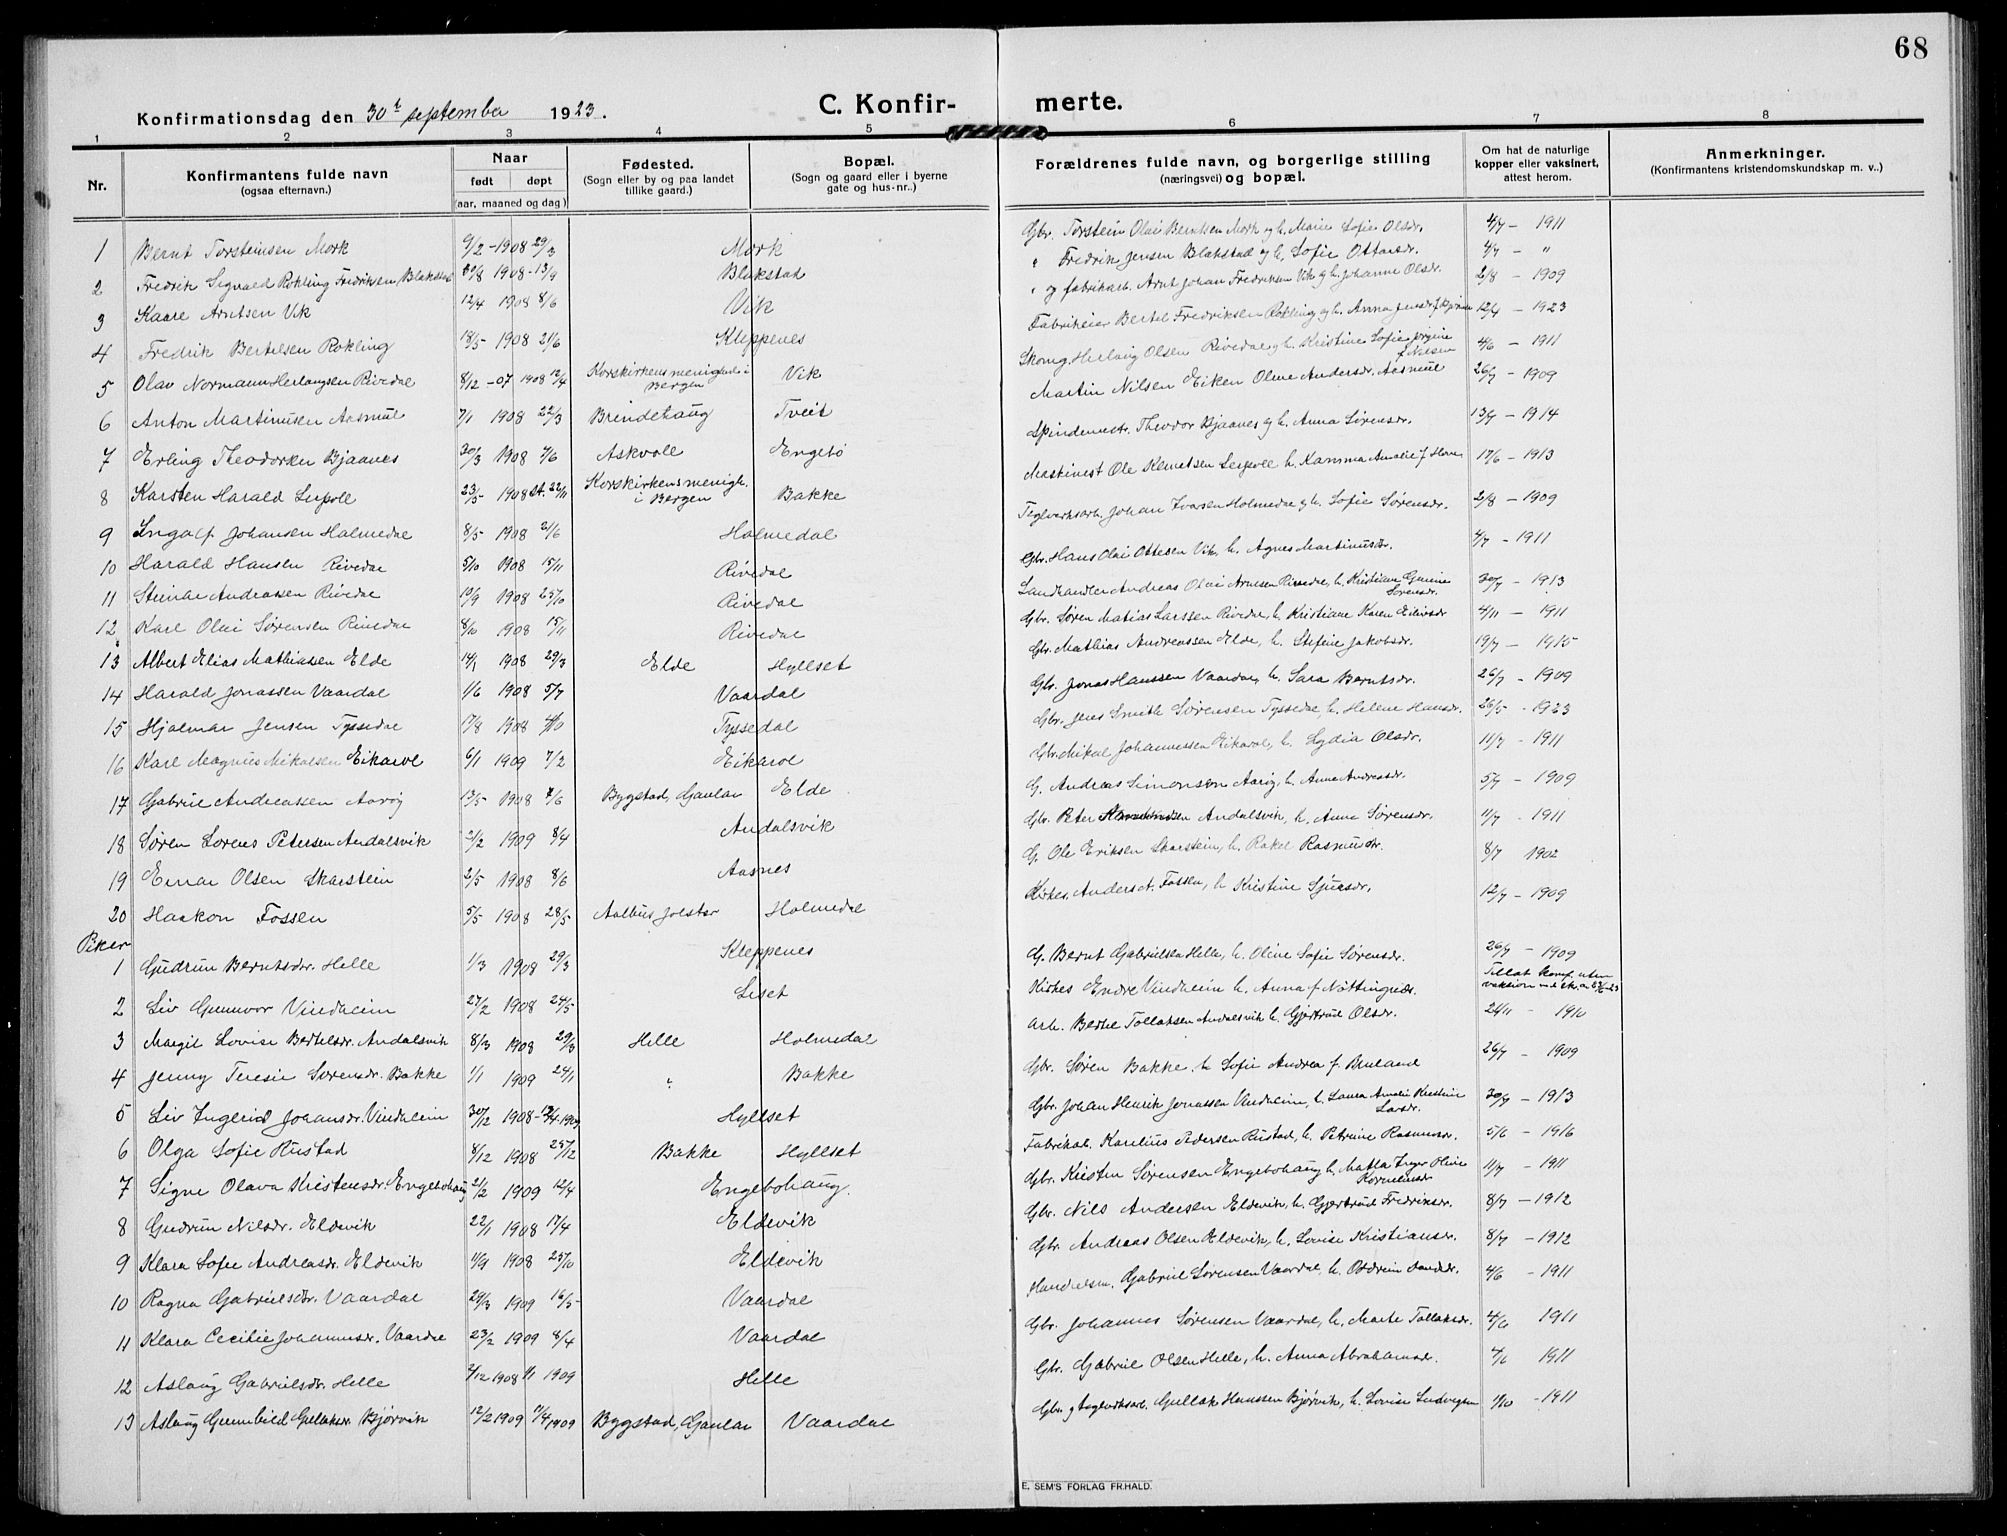 68
Konfirmationsdag den 30t september 1923.
C. Konfir-
merte.
1 2 3 4 5 6 7 8
Nr.
Konfirmantens fulde navn
(ogsaa efternavn.)
Naar
født døpt
(aar, maaned og dag)
Fødested.
(Sogn eller by og paa landet
tillike gaard.)
Bopæl.
(Sogn og gaard eller i byerne
gate og hus-nr..)
Forældrenes fulde navn, og borgerlige stilling
(næringsvei) og bopæl.
Om hat de naturlige
kopper eller vaksinert,
attest herom.
Anmerkninger.
(Konfirmantens kristendomskundskap m. v..)
1 Bernt Torsteinsen Mork 9/2 - 1908 29/3 Mork Gbr. Torstein Olai Berntsen Mork og h. Marie Sofie Olsdr. 4/7 - 1911
2 Fredrik Sigvald Rokling Fredriksen Blakstad 30/8 1908 - 13/9 Blakstad " Fredrik Jensen Blakstad og h. Sofie Ottarsdr. 4/7 - "
3 Kaare Arntsen Vik 12/4 1908 8/6 Vik " og fabrikarb. Arnt Johan Fredriksen Vik og h. Johanne Olsdr. 2/8 - 1909
4 Fredrik Bertelsen Rokling 18/5 1908 21/6 Kleppenes Fabrikeier Bertel Fredriksen Rokling og h. Anna 12/4 - 1923
5 Olav Normann Herlaugsen Rivedal 8/12 - 07 1908 12/4 Korskirkens menighed i Bergen Vik Skomg. Herlaug Olsen Rivedal og h. Kristine Sofie Jørgine f. Nilsen 4/6 - 1911
6 Anton Martinusen Aasmul 7/1 1908 22/3 Brindehaug Tveit Martin Nilsen Eiken Oline Andersdr. Aasmul 26/7 - 1909
7 Erling Theodorken Bjaanes 20/3 1908 7/6 Askvoll Engebø Spindemestr. Theodor Bjaanes og h. Anna Sørensdr. 13/7 - 1914
8 Karsten Harald Leipoll 23/5 1908 St. 22/11 Korskirkens menigh. i Bergen Bakke Maskinest Ole Klemetsen Leipoll h. Kamma Amalie f. 17/6 - 1913
9 Ingolf Johansen Holmedal 8/5 1908 21/6 Holmedal Teglverksarb. Johan Ivarsen Holmedal og h. Sofie Sørensdr. 2/8 - 1909
10 Harald Hansen Rivedal 5/10 1908 15/11 Rivedal Gbr. Hans Olai Ottesen Vik, h. Agnes Martinusdr. 4/7 - 1911
11 Steinar Andreassen Rivedal 10/9 1908 25/10 Rivedal Landhandler Andreas Olai Arnesen Rivedal, h. Kristiane Gurine Sørensdr. 30/7 - 1913
12 Karl Olai Sørensen Rivedal 8/10 1908 15/11 Rivedal Gbr. Søren Matias Larssen Rivedal, h. Kristiane Karen Eliasdr. 4/11 - 1911
13 Albert Elias Mathiassen Elde 14/1 1908 29/3 Elde Hyllset Gbr. Mathias Andreassen Elde, h. Stefine Jakobsdr. 19/7 - 1915
14 Harald Jonassen Vaardal 1/6 1908 5/7 Vaardal Gbr. Jonas Hanssen Vaardal, h. Sara Berntsdr. 26/7 - 1909
15 Hjalmar Jensen Tyssedal 17/8 1908 Tyssedal Gbr. Jens Smith Sørensen Tyssedal, h. Helene Hansdr. 26/5 - 1923
16 Karl Magnus Mikalsen Eikarol 6/1 1909 7/2 Eikarol Gbr. Mikal Johannessen Eikarol, h. Lydia Olsdr. 11/7 - 1911
17 Gabriel Andreassen Aarøy 13/5 1908 Bygstad, Gaular Elde G. Andreas Simonsen Aarøy, h. Anne Andreasdr. 5/7 - 1909
18 Søren Lorens Petersen Andalsvik 2/2 1909 8/4 Andalsvik Gbr. Peter Andalsvik, h. Anna Sørensdr. 11/7 - 1911
19 Einar Olsen Skarstein 2/5 1908 8/6 Aasnes G. Ole Eriksen Skarstein, h. Rakel Rasmusdr. 8/7 1902
20 Haakon Fossen 5/5 1908 28/5 Aalhus Jølster Holmedal Kirkes. Anders A. Fossen, h Kristine Sjursdr. 12/7 - 1909
Piker
1 Gudrun Berntsdr. Helle 1/3 1908 29/3 Kleppenes G. Bernt Gabrielsen Helle, h. Oline Sofie Sørensdr. 26/7 - 1909
2 Liv Gunnvor Vindheim 27/2 1908 24/5 Leset Kirkes Endre Vindheim h. Anna f. Nøttingnes. Tillat konf. uten
3 Margit Lovise Bertelsdr. Andalsvik 8/3 1908 29/3 Helle Holmedal Arb. Bertel Tollaksen Andalsvik h. Gjertrud Olsdr. 24/11 - 1910
4 Jenny Teresie Sørensdr. Bakke 1/1 1909 24/1 " Bakke Gbr. Søren Bakke, h Sofie Andrea f. Bruland 26/7 - 1909
5 Liv Ingerid Johansdr. Vindheim 30/12 1908 - 12/4 1909 Hyllset Gbr. Johan Henrik Jonassen Vindheim, h. Laura Amalie Kristine Larsdr. 30/7 - 1913
6 Olga Sofie Rustad 8/12 1908 25/12 Bakke Hyllset Fabrikab. Karelius Pedersen Rustad, h. Petrine Rasmusdr. 5/6 - 1916
7 Signe Olava Kristensdr. Engebøhaug 21/2 1909 12/4 Engebøhaug. Gbr. Kristen Sørensen Engebøhaug h. Malla Inger Oline Korneliusdr 11/7 - 1911
8 Gudrun Nilsdr. Eldevik 22/1 1908 17/4 Eldevik Gbr. Nils Andersen Eldevik, h. Gjertrud Fredriksdr. 8/7 - 1912
9 Klara Sofie Andreasdr. Eldevik 1/9 1908 25/10 Eldevik Gbr. Andreas Olsen Eldevik, h. Lovise Kristiansdr. 8/7 - 1912
10 Ragna Gabrielsdr. Vaardal 29/3 1909 16/5 Vaardal Handelsm. Gabriel Sørensen Vaardal, h. 4/6 - 1911
11 Klara Cecilie Johannesdr. Vaardal 23/2 1909 8/4 Vaardal Gbr. Johannes Sørensen Vaardal, h. Marte Tollaksdr. 4/6 1911
12 Aslaug Gabrielsdr. Helle 2/12 1908 1/1 1909 Helle Gbr. Gabriel Olsen Helle, h. Anna Abrahamsdr. 4/6 1911
13 Aslaug Gunnhild Gullaksdr. Bjørvik 12/2 1909 11/4 1909 Bygstad, Gaular Vaardal Gbr. og teglverksarb. Gullak Hanssen Bjørvik, h. Lovise Ludvigsen 1/10 - 1911
E. SEM'S FORLAG FR.HALD.